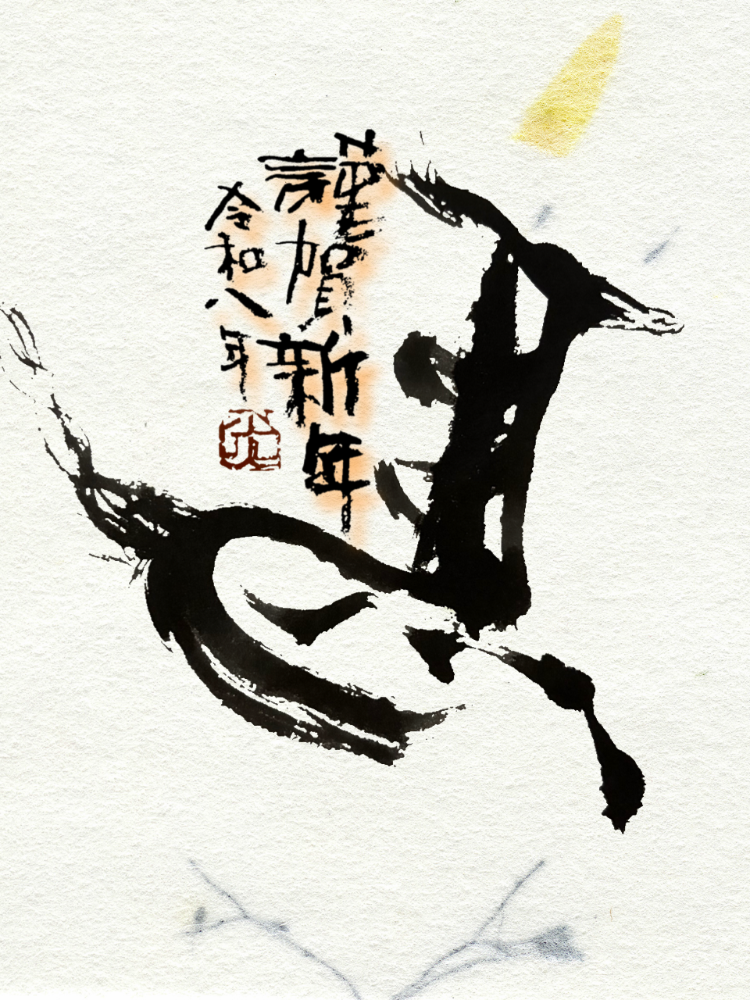 謹賀新年
令和八年